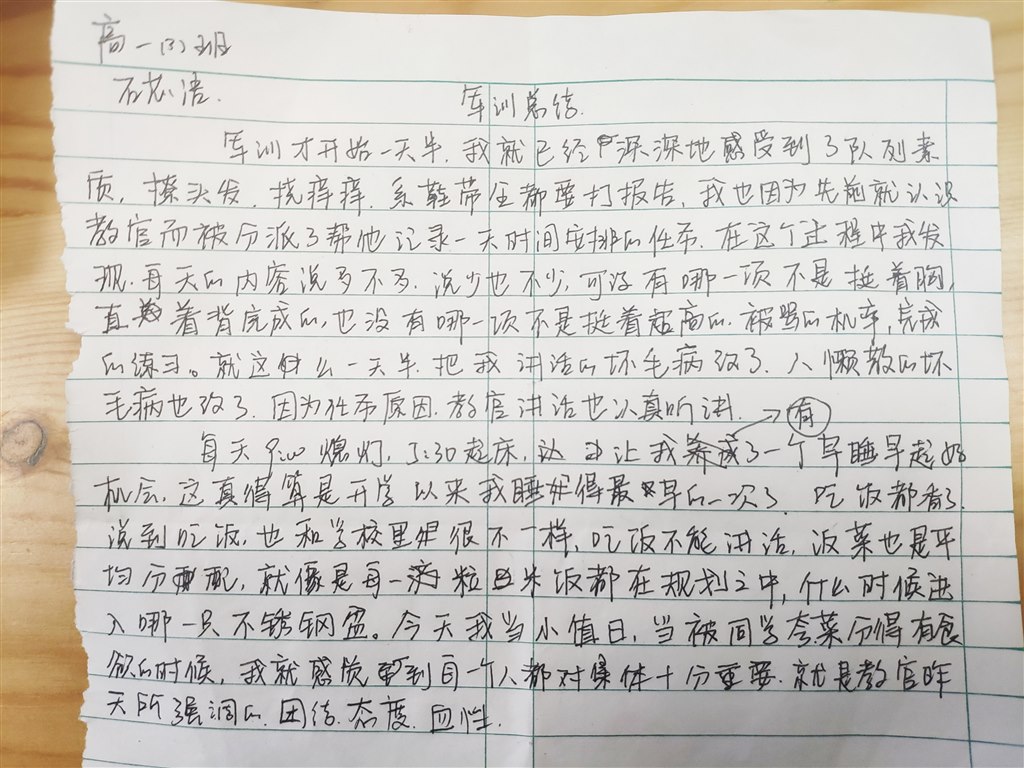 高一(3)班
石芯语.
军训总结.
军训才开始一天半.我就已经深深地感受到了队列素
质,撩头发.挠痒痒.系鞋带全都要打报告.我也因为先前就认识
教官而被分派了帮他记录一天时间安排的任务.在这个过程中我发
现.每天的内容说多不多.说少也不少.可没有哪一项不是挺着胸,
直着背完成的,也没有哪一项不是挺着超高的.被骂的机率,完成
的练习。就这什么一天半.把我讲话的坏毛病改了.人懒散的坏
毛病也改了.因为任务原因.教官讲话也认真听讲.
每天9:00熄灯,5:30起床,这让我有了一个早睡早起好
机会.这真得算是开学以来我睡得最早的一次了.吃饭都香了.
说到吃饭,也和学校里很不一样,吃饭不能讲话,饭菜也是平
均分配,就像是每一粒米饭都在规划之中,什么时候进
入哪一只不锈钢盆。今天我当小值日,当被同学夸菜分得有食
欲的时候,我就感觉到每一个人都对集体十分重要.就是教官昨
天所强调的.团结.态度.血性.